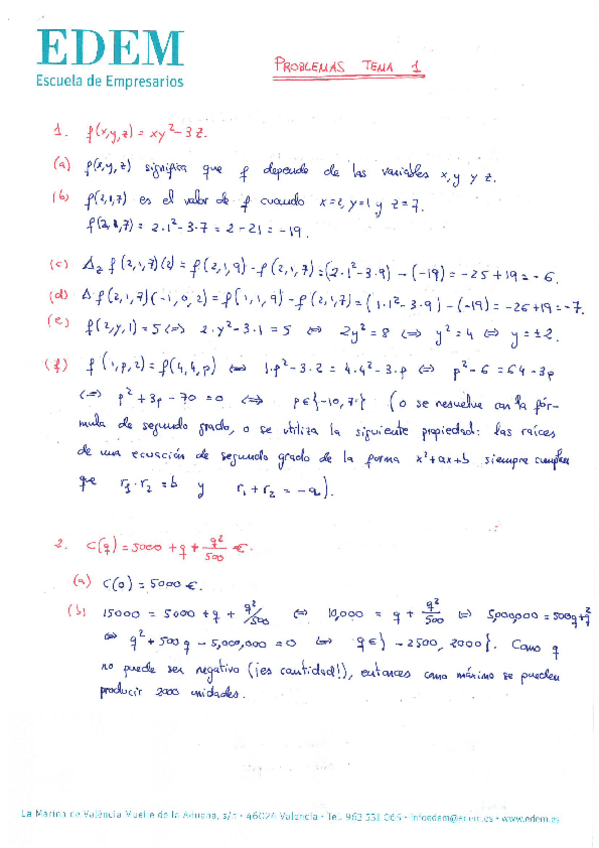 EDEM
Escuela de Empresarios
PROBLEMAS TEMA 1
1. f(x,y,z) = xy²-3z.
(a) f(x,y,z) significa que f depende de las variables x, y y z.
(b) f(2,1,7) es el valor de f cuando x=2, y=1 y z=7.
f(2,1,7) = 2·1²-3·7 = 2-21 = -19.
(c) Δz f(2,1,7)(2) = f(2,1,9) - f(2,1,7) = (2·1²-3·9) - (-19) = -25+19 = -6.
(d) Δf(2,1,7)(-1,0,2) = f(1,1,9) - f(2,1,7) = (1·1²-3·9) - (-19) = -26+19 = -7.
(e) f(2,y,1) = 5 ⇔ 2·y²-3·1 = 5 ⇔ 2y² = 8 ⇔ y² = 4 ⇔ y = ±2.
(f) f(1,p,2) = f(4,4,p) ⇔ 1·p²-3·2 = 4·4²-3·p ⇔ p²-6 = 64-3p
⇔ p²+3p-70 = 0 ⇔ p∈{-10,7} (o se resuelve con la fór-
mula de segundo grado, o se utiliza la siguiente propiedad: las raíces
de una ecuación de segundo grado de la forma x²+ax+b siempre cumplen
que r₁·r₂ = b y r₁+r₂ = -a).
2. C(q) = 5000 + q + q²/500 €.
(a) C(0) = 5000 €.
(b) 15000 = 5000 + q + q²/500 ⇔ 10,000 = q + q²/500 ⇔ 5,000,000 = 500q+q²
⇔ q²+500q-5,000,000 = 0 ⇔ q∈{-2500, 2000}. Como q
no puede ser negativo (¡es cantidad!), entonces como máximo se pueden
producir 2000 unidades.
La Marina de València Muelle de la Aduana, s/n • 46024 Valencia • Tel. 963 531 065 • infoedem@edem.es • www.edem.es